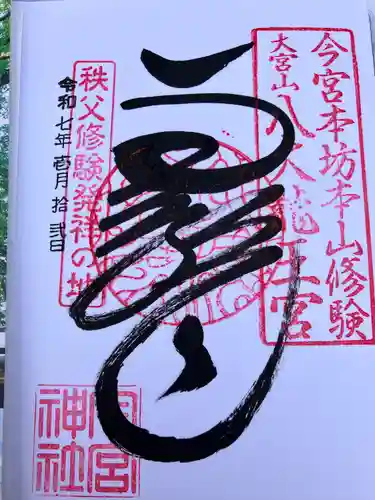 今宮本坊本山修験
大宮山
八大龍王宮
秩父修験発祥の地
令和七年壱月拾弐日
今宮神社